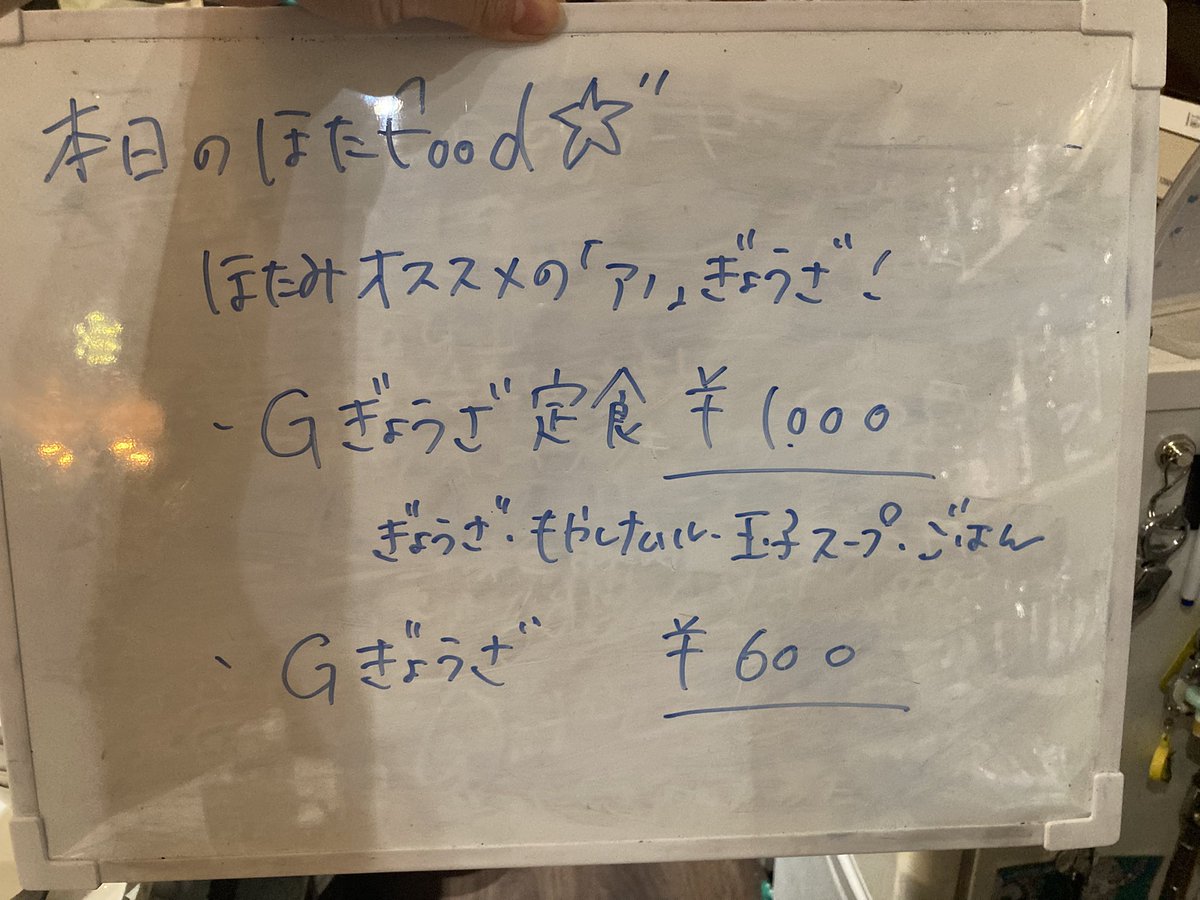 本日のほたfood☆"
ほたみオススメの「アノ」ぎょうざ!
・Gぎょうざ定食 ¥1.000
ぎょうざ・もやしナムル・玉子スープ・ごはん
・Gぎょうざ ¥600